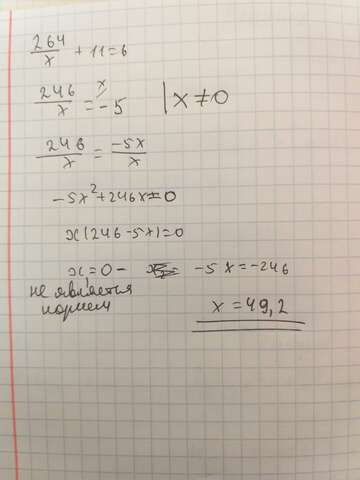 264/x + 11 = 6
246/x = -5 x | x ≠ 0
246/x = -5x/x
-5x² + 246x = 0
x(246 - 5x) = 0
x = 0 - -5x = -246
не является
корнем x = 49,2